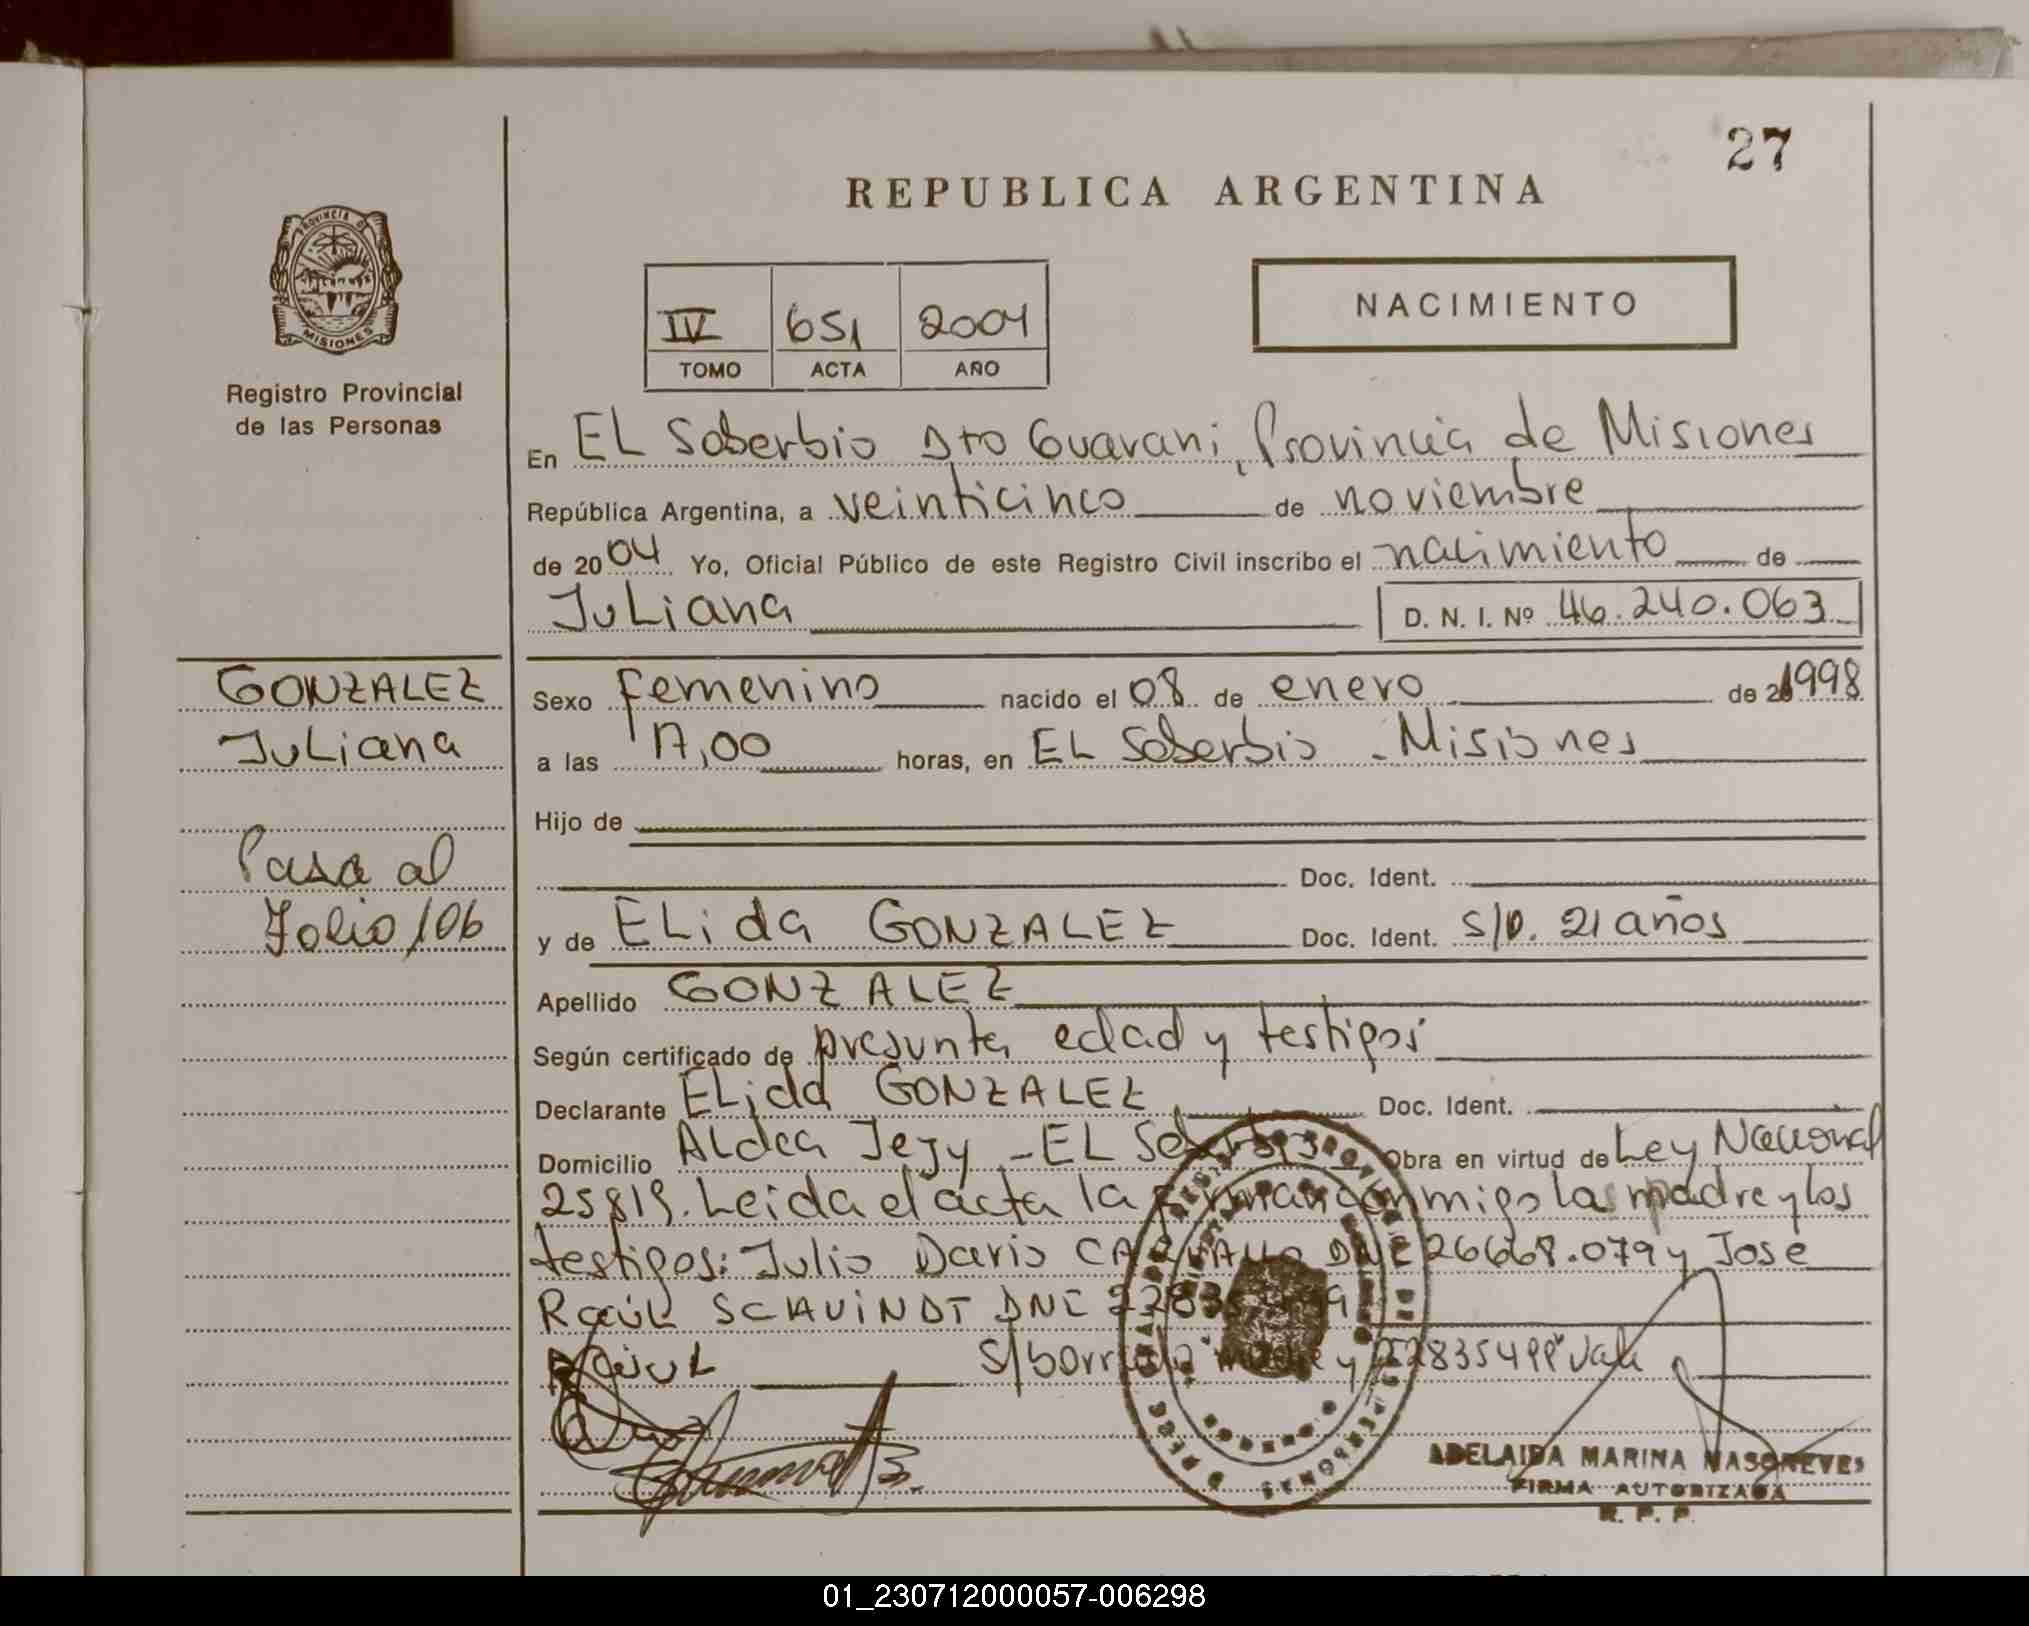 27
REPUBLICA ARGENTINA
PROVINCIA D
MISIONES
Registro Provincial
de las Personas
IV 651 2004
TOMO ACTA AÑO
NACIMIENTO
En EL Soberbio Dto Guarani, Provincia de Misiones
República Argentina, a veinticinco de noviembre
de 2004 Yo, Oficial Público de este Registro Civil inscribo el nacimiento de
Juliana D. N. I. Nº 46.240.063
GONZALEZ
Juliana
Pasa al
Folio 106
Sexo Femenino nacido el 08 de enero de 1998
a las 17,00 horas, en EL Soberbio - Misiones
Hijo de
Doc. Ident.
y de ELida GONZALEZ Doc. Ident. S/D. 21 años
Apellido GONZALEZ
Según certificado de presunta edad y testigos
Declarante ELida GONZALEZ Doc. Ident.
Domicilio Aldea Jejy - EL Soberbio Obra en virtud de Ley Nacional
25819. Leida el acta la firman conmigo la madre y los
testigos: Julio Dario DNI 26668.079 y Jose
Raúl SCHVINDT DNI
RAÚL S/borrado "madre y 22835499" Vale
ADELAIDA MARINA
FIRMA AUTORIZADA
R. P. P.
01_230712000057-006298